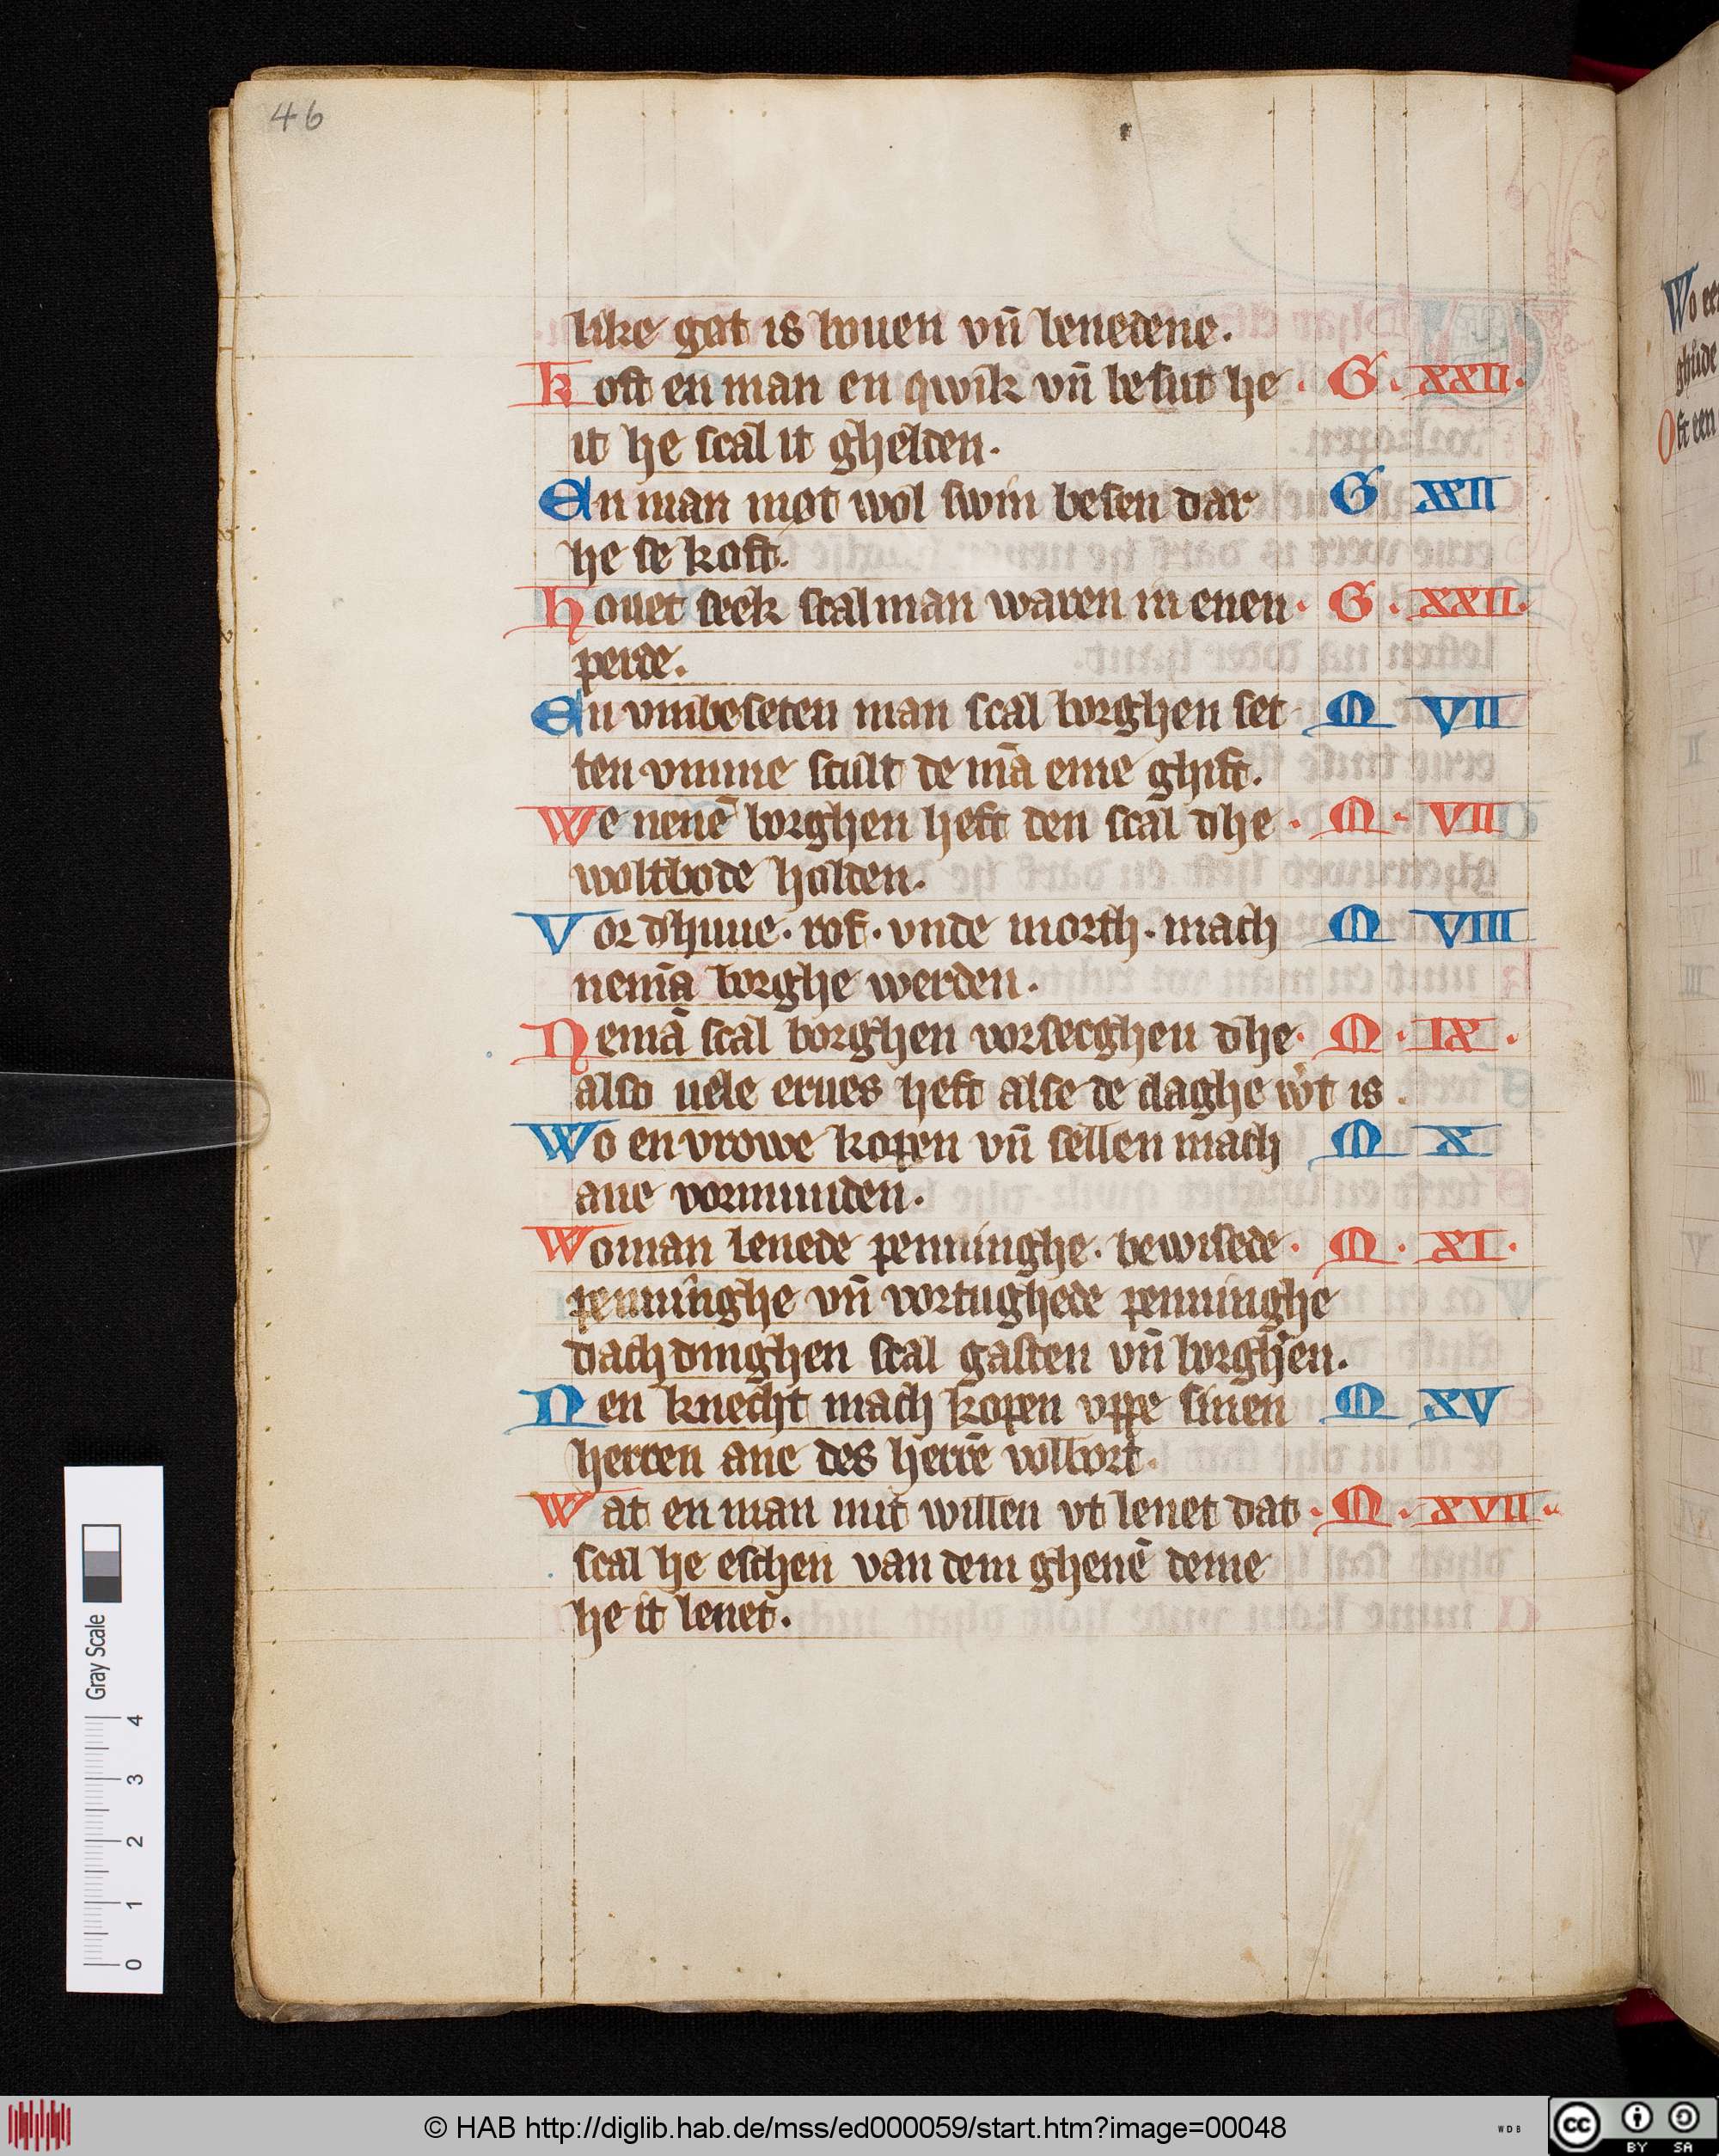 46
like got is bouen vn̄ benedene.
Koft en man en qwik vn̄ besut he · G · XXII ·
it he scal it ghelden.
En man mot wol swin besen dar G XXII
he se koft.
Houet seek scal man waren in enen · G · XXII ·
perde.
En vmbeseten man scal borghen set M VII
ten vmme scult de mā eme ghift.
We nenē borghen heft den scal dhe · M · VII
woltbode holden.
Vor dhuue · rof · vnde morth · mach M VIII
nemā borghe werden.
Nemā scal borghen vorsecghen dhe · M · IX ·
also uele erues heft alse de claghe wt is .
Wo en vrowe kopen vn̄ sellen mach M X
ane vormunden.
Wo man lenede penninghe · bewisede · M · XI ·
penninghe vn̄ vortughede penninghe
dach dinghen scal gasten vn̄ borghen.
Nen knecht mach kopen vppe sinen M XV
herren ane des herrē volbort.
Wat en man mit willen vt lenet dat · M · XVII ·
scal he eschen van dem ghenē deme
he it lenet.
Wo ee
ghude
Oft een
Gray Scale
0 1 2 3 4
© HAB http://diglib.hab.de/mss/ed000059/start.htm?image=00048
WDB
cc BY SA